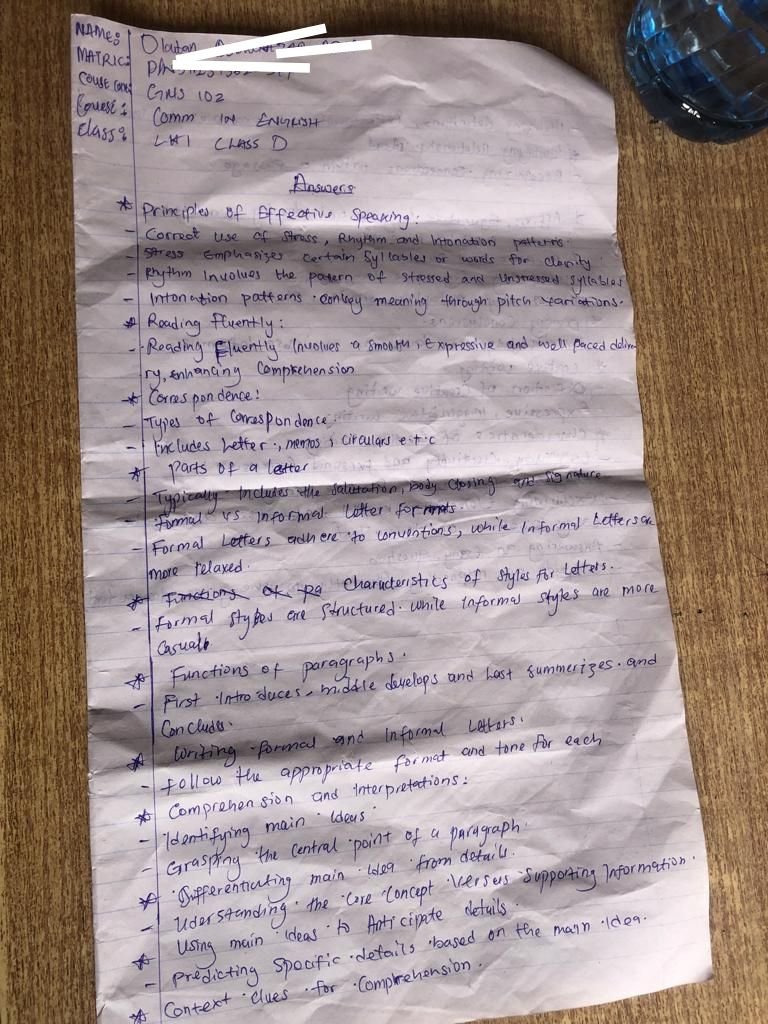 NAME: Olaitan
MATRIC:
Course code GNS 102
Course: Comm IN ENGLISH
Class: CLASS D
Answers
* Principles of Effective Speaking:
- Correct use of Stress, Rhythm and Intonation patterns.
- Stress Emphasizes Certain Syllables or words for clarity.
- Rhythm Involves the patern of stressed and Unstressed Syllables
- Intonation patterns convey meaning through pitch variations.
* Reading fluently:
- Reading Fluently Involves a smooth, Expressive and well paced delive
ry, enhancing Comprehension
* Correspondence:
- Types of Correspondence:
- Includes Letter, memos, circulars e.t.c
* Parts of a Letter
- Typically Includes the salutation, body closing and Signature
- formal vs Informal Letter formats.
- Formal Letters adhere to conventions, while Informal Letters are
more relaxed.
* Functions of pa Characteristics of styles for Letters.
- Formal styles are structured while informal styles are more
Casual.
* Functions of paragraphs.
- First Introduces, middle develops and Last summerizes and
Conclude.
* Writing formal and Informal Letters.
- Follow the appropriate format and tone for each
* Comprehension and Interpretations:
- Identifying main Ideas
- Grasping the central point of a paragraph.
* Differentiating main Idea from details.
- Uderstanding the Core Concept versus Supporting Information.
* Using main Ideas to Anticipate details.
- Predicting Specific details based on the main Idea.
* Context Clues for Comprehension.